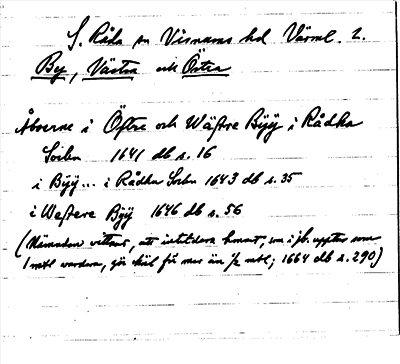 S. Råda sn Visnums hd Värml. l.
By, Västra och Östra
Åboerne i Öftre och Wäftre Byÿ i Rådha
Sochn 1641 db s. 16
i Byÿ... i Rådha Sochn 1643 db s. 35
i Weftere Bÿÿ 1646 db s. 56
(Nämnden vittnar, att intetdera hemmt, som i jb. upptas som
1 mtl vardera, gör skäl för mer än ½ mtl; 1664 db s. 290)